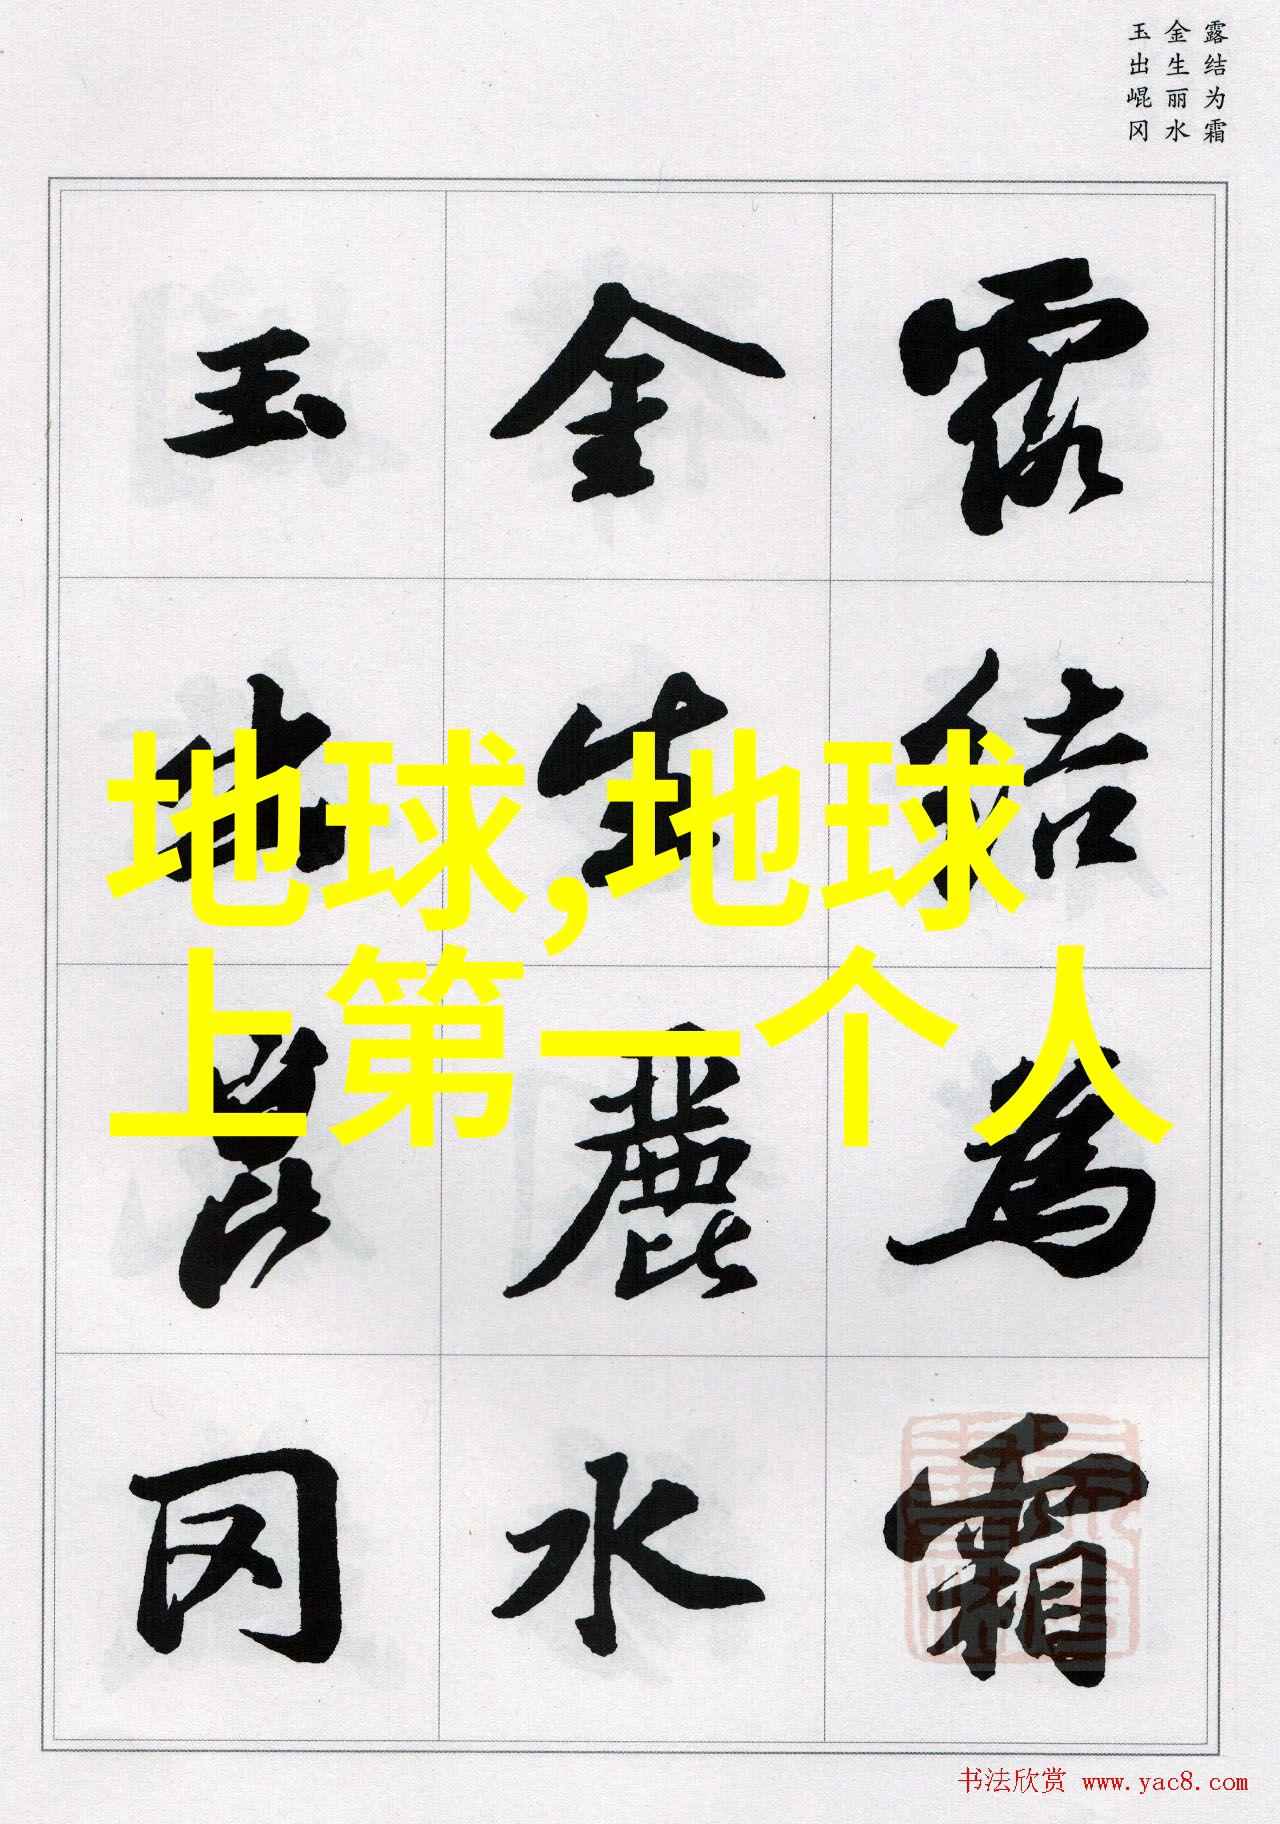 露结为霜
金生丽水
玉出崐冈
露結為霜
金生麗水
玉出崑冈
地球,地球
上第一个人
书法欣赏 www.yac8.com